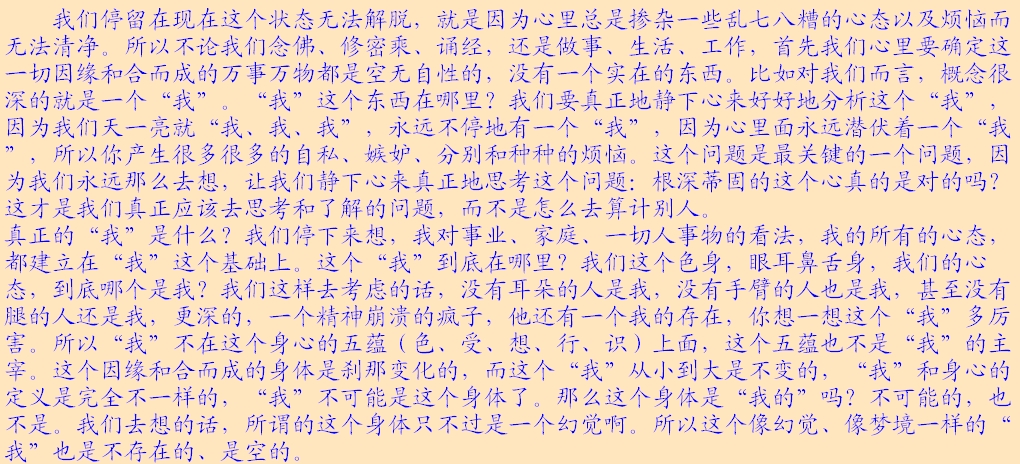 我们停留在现在这个状态无法解脱，就是因为心里总是掺杂一些乱七八糟的心态以及烦恼而
无法清净。所以不论我们念佛、修密乘、诵经，还是做事、生活、工作，首先我们心里要确定这
一切因缘和合而成的万事万物都是空无自性的，没有一个实在的东西。比如对我们而言，概念很
深的就是一个“我”。“我”这个东西在哪里？我们要真正地静下心来好好地分析这个“我”，
因为我们天一亮就“我、我、我”，永远不停地有一个“我”，因为心里面永远潜伏着一个“我
”，所以你产生很多很多的自私、嫉妒、分别和种种的烦恼。这个问题是最关键的一个问题，因
为我们永远那么去想，让我们静下心来真正地思考这个问题：根深蒂固的这个心真的是对的吗？
这才是我们真正应该去思考和了解的问题，而不是怎么去算计别人。
真正的“我”是什么？我们停下来想，我对事业、家庭、一切人事物的看法，我的所有的心态，
都建立在“我”这个基础上。这个“我”到底在哪里？我们这个色身，眼耳鼻舌身，我们的心
态，到底哪个是我？我们这样去考虑的话，没有耳朵的人是我，没有手臂的人也是我，甚至没有
腿的人还是我，更深的，一个精神崩溃的疯子，他还有一个我的存在，你想一想这个“我”多厉
害。所以“我”不在这个身心的五蕴（色、受、想、行、识）上面，这个五蕴也不是“我”的主
宰。这个因缘和合而成的身体是刹那变化的，而这个“我”从小到大是不变的，“我”和身心的
定义是完全不一样的，“我”不可能是这个身体了。那么这个身体是“我的”吗？不可能的，也
不是。我们去想的话，所谓的这个身体只不过是一个幻觉啊。所以这个像幻觉、像梦境一样的“
我”也是不存在的、是空的。